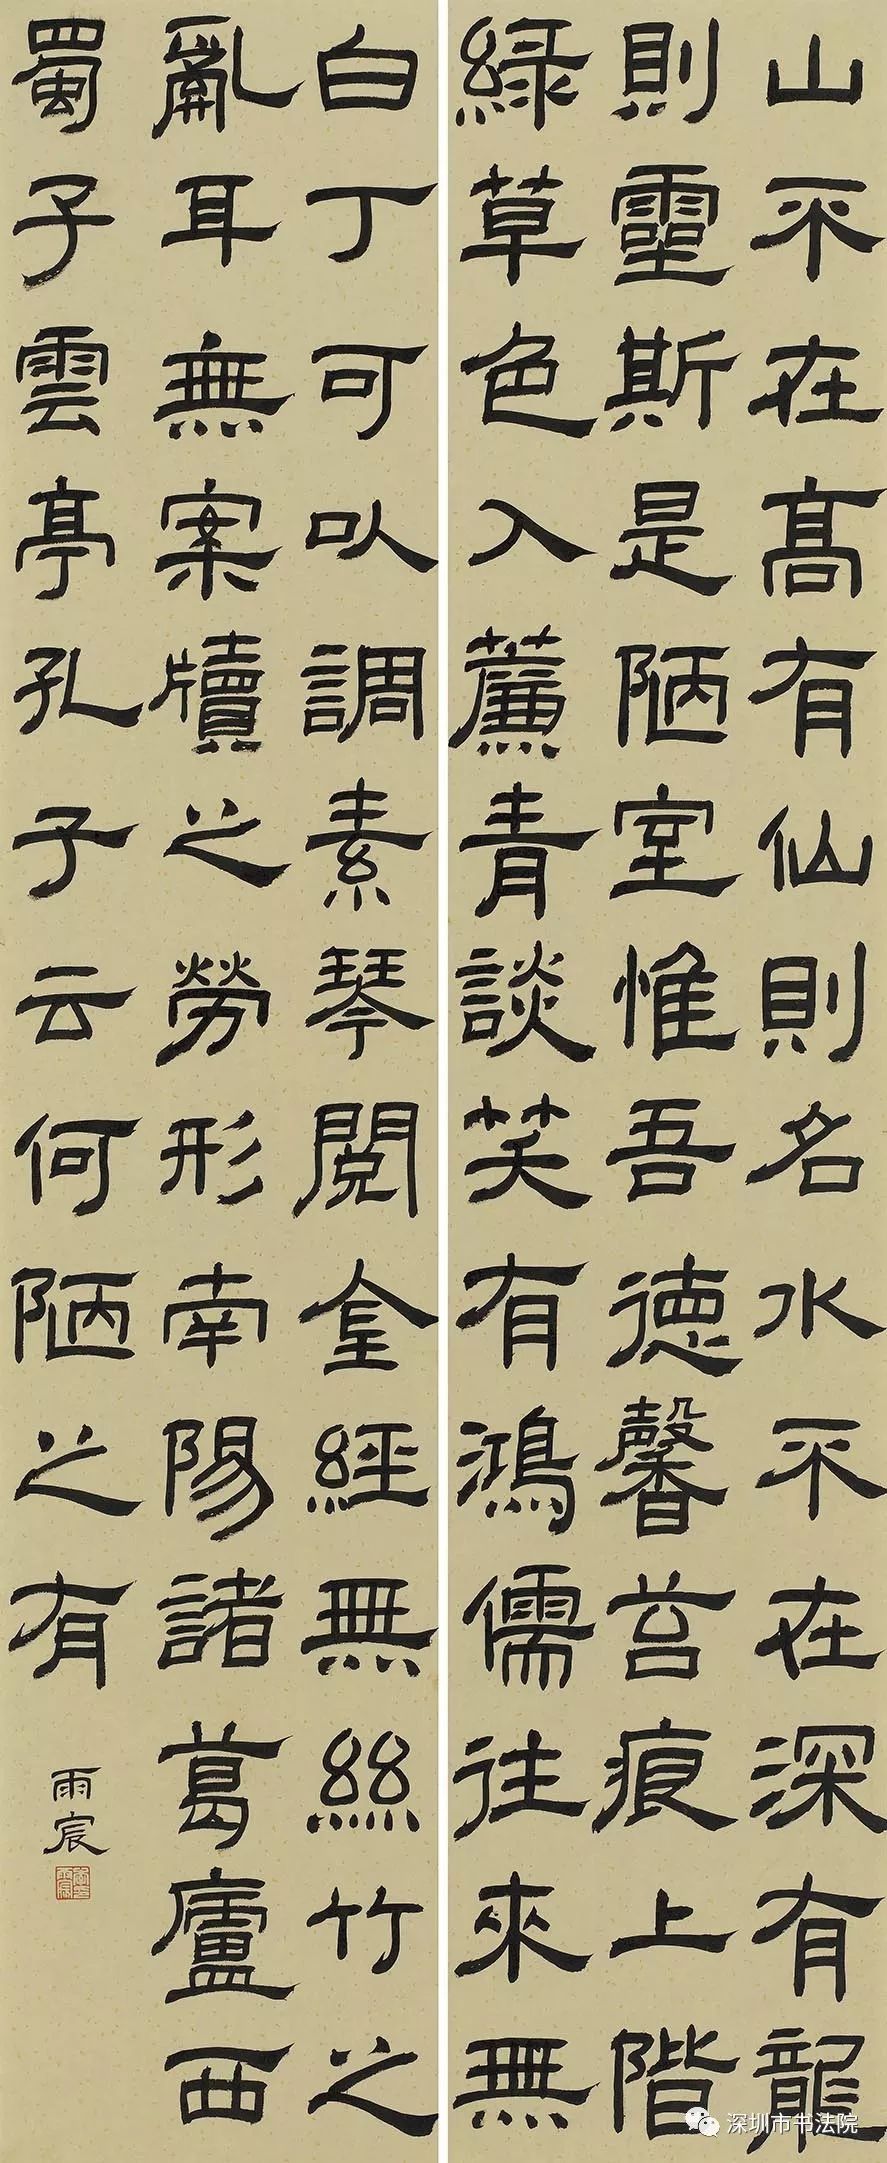 山不在高有仙則名水不在深有龍
則靈斯是陋室惟吾德馨苔痕上階
綠草色入薕青談笑有鴻儒往來無
白丁可以調素琴閱金經無絲竹之
亂耳無案牘之勞形南陽諸葛廬西
蜀子雲亭孔子云何陋之有
雨宸
深圳市书法院